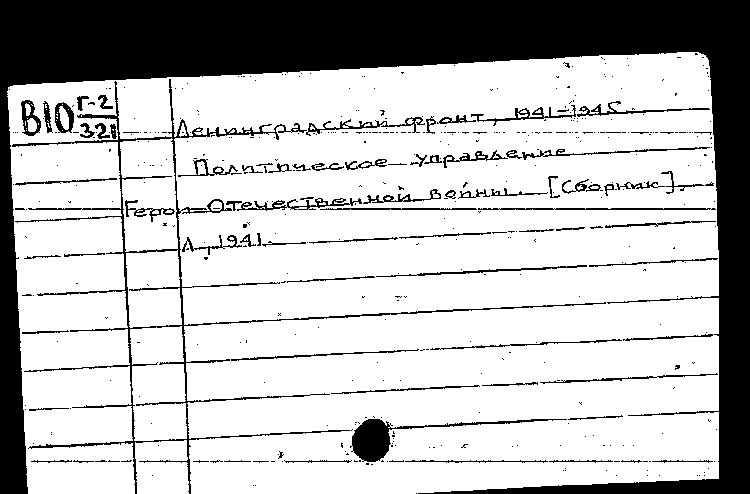 В10 Г-2
321
Ленинградский фронт, 1941-1945.
Политическое управление
Герои Отечественной войны. [Сборник].
Л., 1941.